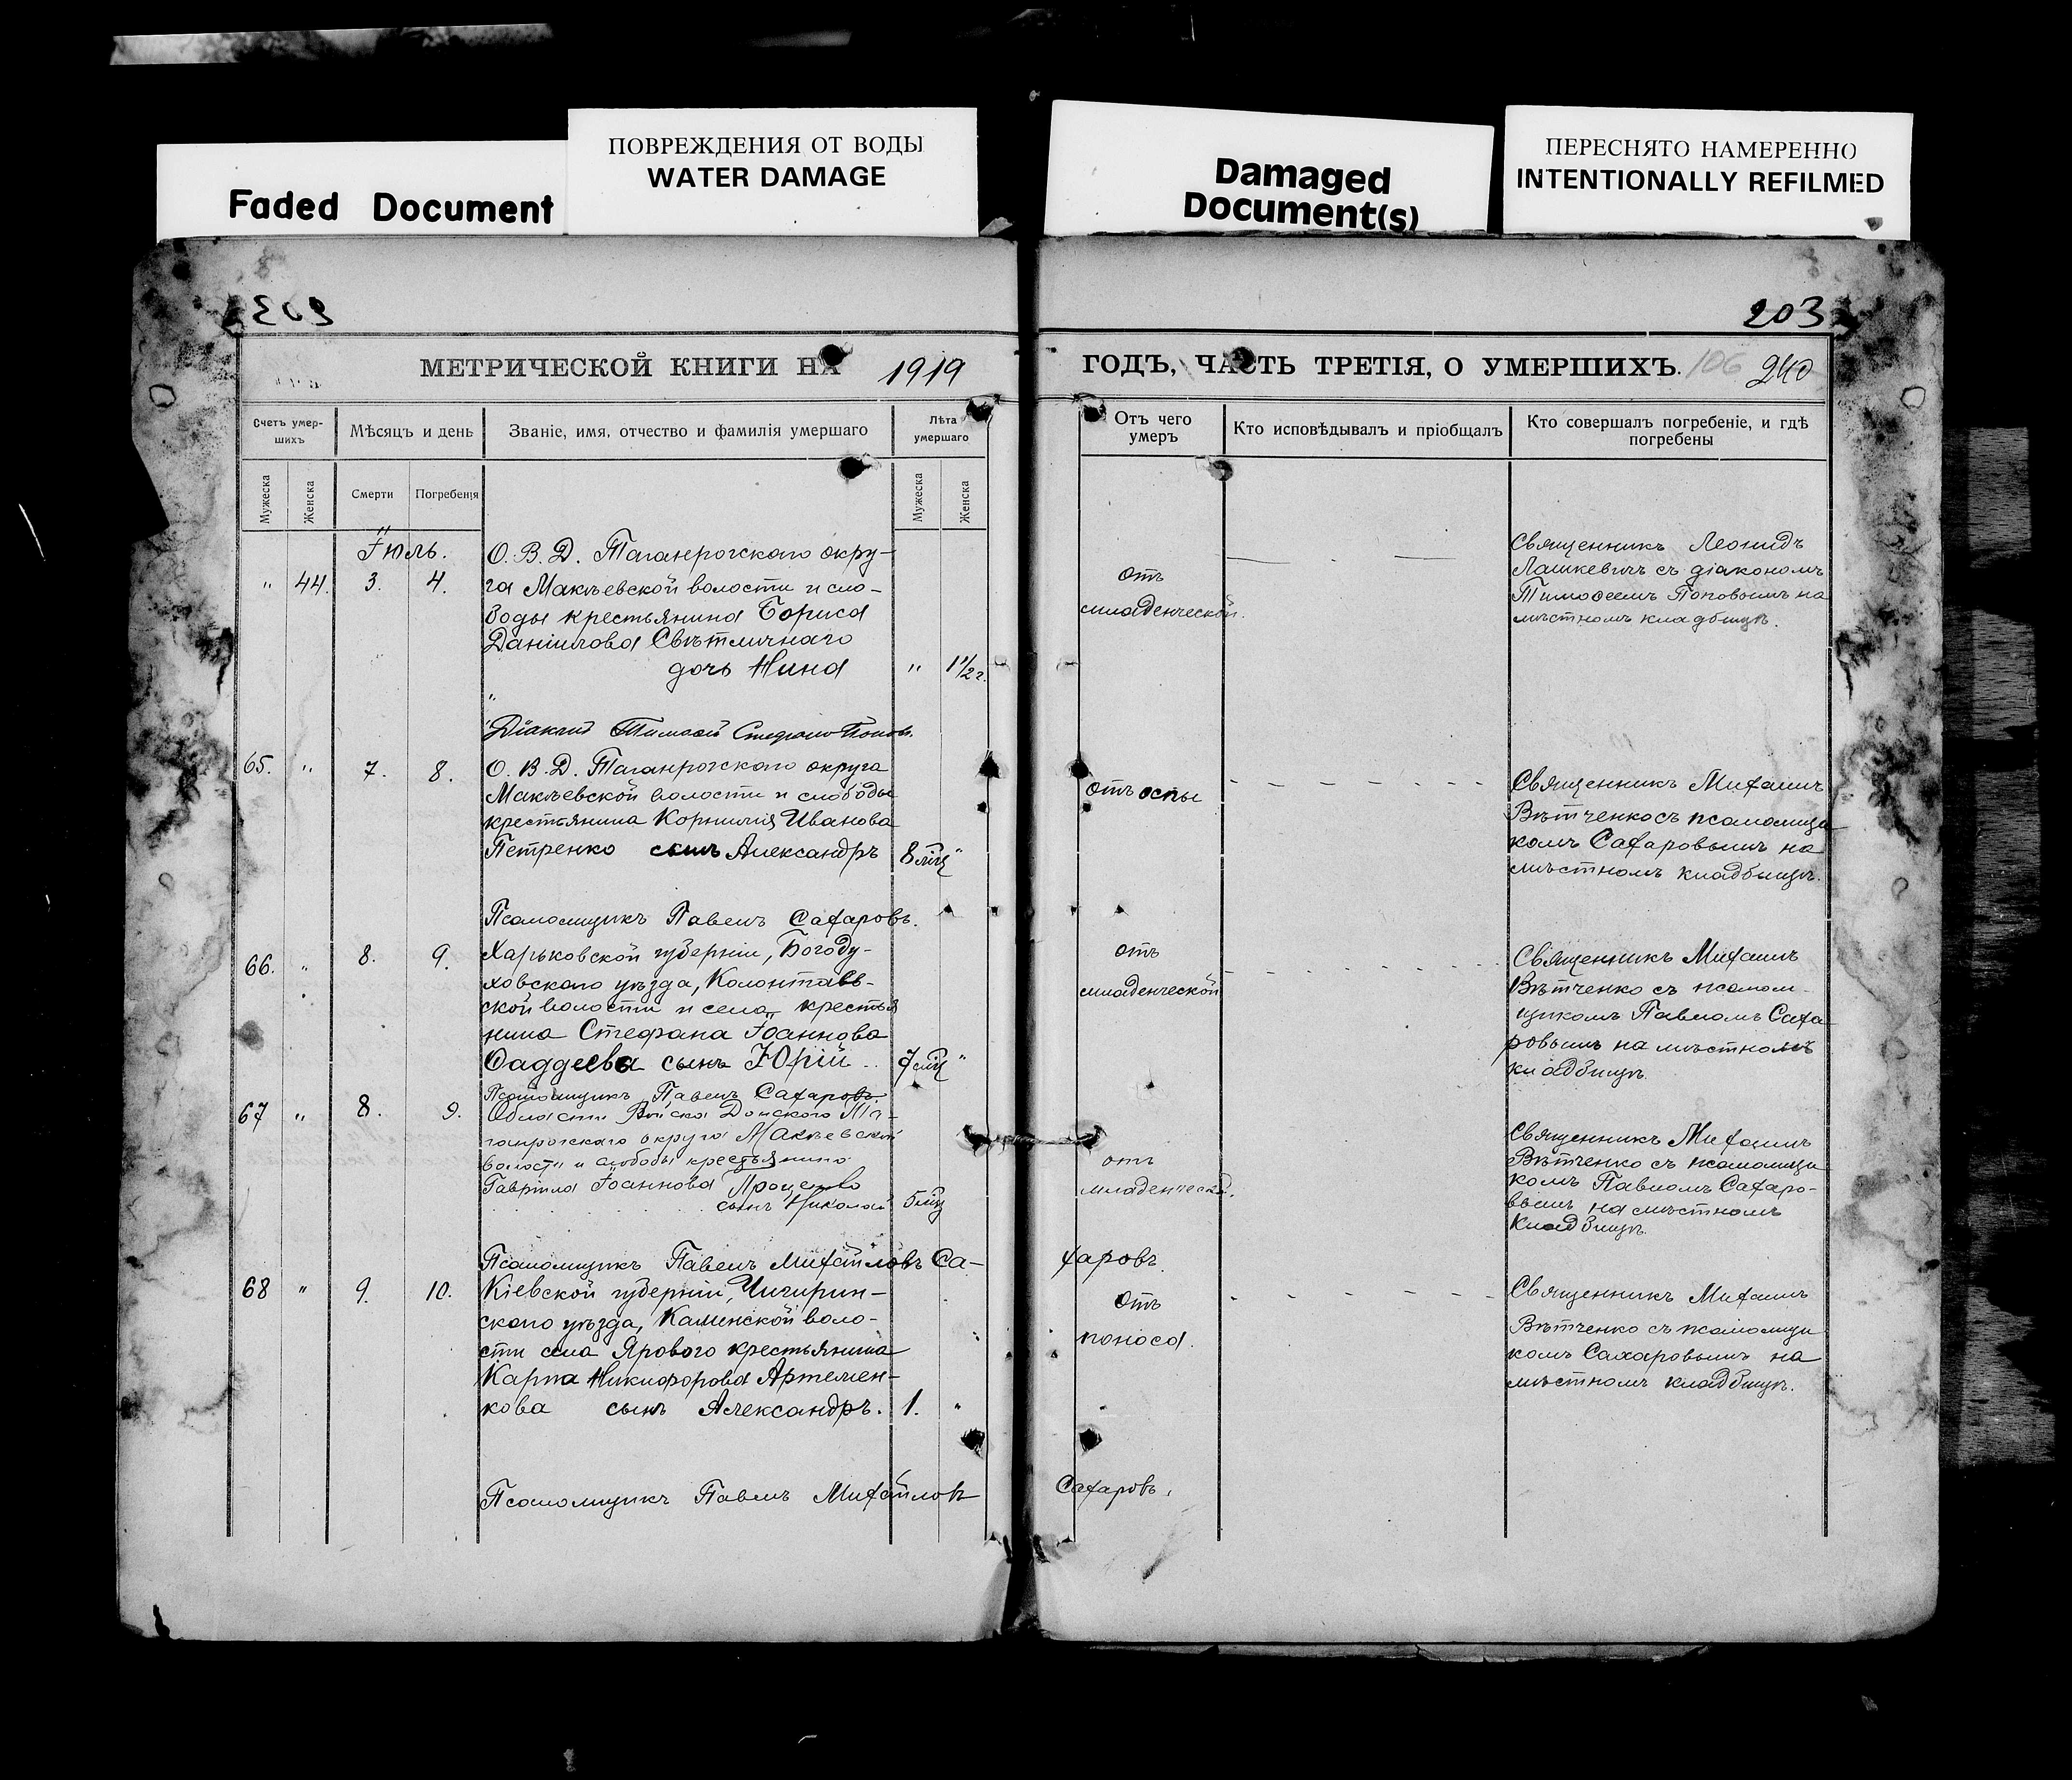 Faded Document
ПОВРЕЖДЕНИЯ ОТ ВОДЫ
WATER DAMAGE
Damaged
Document(s)
ПЕРЕСНЯТО НАМЕРЕННО
INTENTIONALLY REFILMED
203
МЕТРИЧЕСКОЙ КНИГИ НА 1919
ГОДЪ, ЧАСТЬ ТРЕТІЯ, О УМЕРШИХЪ. 106 240
Счетъ умер-
шихъ
Мѣсяцъ и день
Званіе, имя, отчество и фамилія умершаго
Лѣта
умершаго
Отъ чего
умеръ
Кто исповѣдывалъ и пріобщалъ
Кто совершалъ погребеніе, и гдѣ
погребены
Мужеска
Женска
Смерти
Погребенія
Мужеска
Женска
Іюль.
" 44. 3. 4.
О. В. Д. Таганрогскаго окру-
га Макѣевской волости и сло-
боды крестьянина Бориса
Даніилова Свѣтличнаго
дочь Нина " 1 1/2 г.
отъ
младенческой.
Священникъ Леонидъ
Лашкевичъ съ діакономъ
Тимоѳеемъ Поповымъ на
мѣстномъ кладбищѣ.
Діаконъ Тимоѳей Стефановъ Поповъ.
65. " 7. 8.
О. В. Д. Таганрогскаго округа
Макѣевской волости и слободы
крестьянина Корнилія Иванова
Петренко сынъ Александръ 8 мѣц "
отъ оспы
Священникъ Михаилъ
Вѣтченко съ псаломщи
комъ Сахаровымъ на
мѣстномъ кладбищѣ.
Псаломщикъ Павелъ Сахаровъ.
66. " 8. 9.
Харьковской губерніи, Богоду-
ховскаго уѣзда, Колонтаев-
ской волости и села крестья
нина Стефана Іоаннова
Ѳаддеева сынъ Юрій .. 7 мѣц "
отъ
младенческой
Священникъ Михаилъ
Вѣтченко съ псалом-
щикомъ Павломъ Саха
ровымъ на мѣстномъ
кладбищѣ.
Псаломщикъ Павелъ Сахаровъ.
67 " 8. 9.
Области Войска Донского Та-
ганрогскаго округа Макѣевской
волости и слободы крестьянина
Гавріила Іоаннова Проценко
сынъ Николай 5 мѣц
отъ
младенческой.
Священникъ Михаилъ
Вѣтченко съ псаломщи
комъ Павломъ Сахаро-
вымъ на мѣстномъ
кладбищѣ.
Псаломщикъ Павелъ Михайловъ Са-
харовъ.
68 " 9. 10.
Кіевской губерніи, Чигирин-
скаго уѣзда, Каменской воло-
сти села Ярового крестьянина
Карпа Никифорова Артемен-
кова сынъ Александръ. 1. "
отъ
поноса.
Священникъ Михаилъ
Вѣтченко съ псаломщи
комъ Сахаровымъ на
мѣстномъ кладбищѣ.
Псаломщикъ Павелъ Михайловъ Сахаровъ.